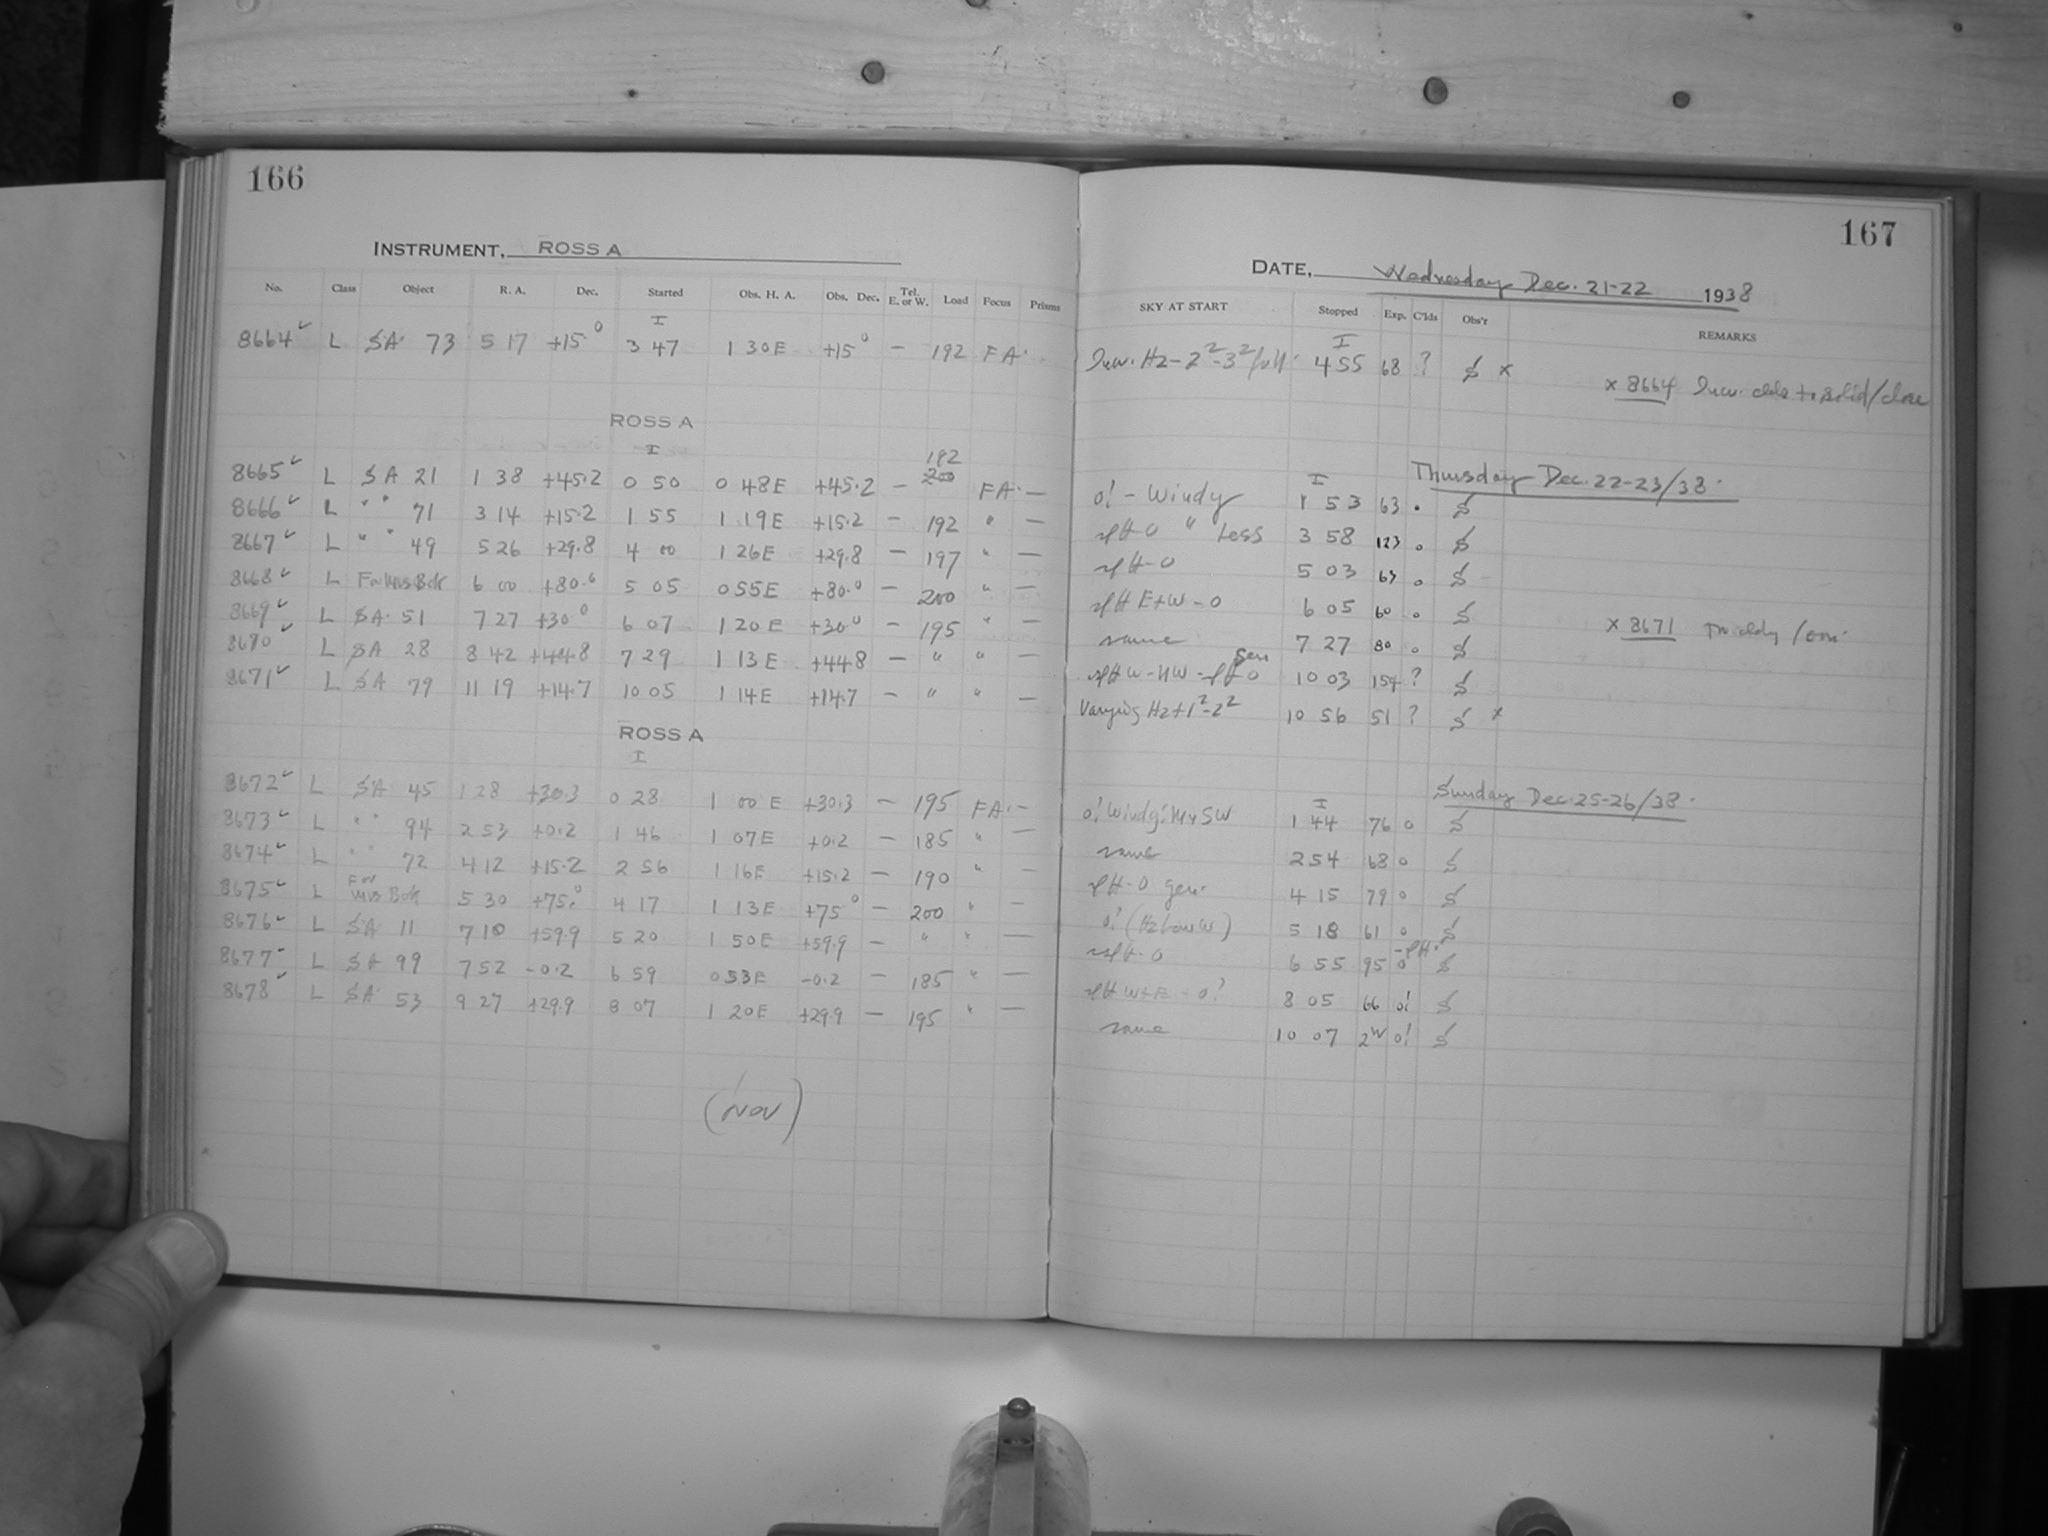 166
INSTRUMENT, ROSS A
No. Class Object R. A. Dec. Started Obs. H. A. Obs. Dec. Tel. E. or W. Load Focus Prisms
I
8664 ✓ L SA 73 5 17 +15 0 3 47 1 30 E +15 0 — 192 FA.
ROSS A
I
192
8665 ✓ L SA 21 1 38 +45.2 0 50 0 48 E +45.2 — 200 FA. —
8666 ✓ L " " 71 3 14 +15.2 1 55 1 19 E +15.2 — 192 " —
8667 ✓ L " " 49 5 26 +29.8 4 00 1 26 E +29.8 — 197 " —
8668 ✓ L For Miss Bok 6 00 +80.0 5 05 0 55 E +80.0 — 200 " —
8669 ✓ L SA. 51 7 27 +30 0 6 07 1 20 E +30 0 — 195 " —
8670 ✓ L SA 28 8 42 +44.8 7 29 1 13 E +44.8 — " " —
8671 ✓ L SA 79 11 19 +14.7 10 05 1 14 E +14.7 — " " —
ROSS A
I
8672 ✓ L SA 45 1 28 +30.3 0 28 1 00 E +30.3 — 195 FA. —
8673 ✓ L " " 94 2 53 +0.2 1 46 1 07 E +0.2 — 185 " —
8674 ✓ L " " 72 4 12 +15.2 2 56 1 16 E +15.2 — 190 " —
8675 ✓ L For Miss Bok 5 30 +75.0 4 17 1 13 E +75 0 — 200 " —
8676 ✓ L SA 11 7 10 +59.9 5 20 1 50 E +59.9 — " " —
8677 ✓ L SA 99 7 52 -0.2 6 59 0 53 E -0.2 — 185 " —
8678 ✓ L SA 53 9 27 +29.9 8 07 1 20 E +29.9 — 195 " —
(Nov)
167
DATE, Wednesday Dec. 21-22 1938
SKY AT START Stopped Exp. C'lds Obs'r REMARKS
I
Hz - 2² - 3² 4 55 68 ? S x x 8664 solid/close
Thursday Dec. 22-23/38.
I
0! - Windy 1 53 63 0 S
0 " Less 3 58 123 0 S
0 5 03 63 0 S
E+W - 0 6 05 60 0 S
same 7 27 80 0 S x 8671
gen
W - NW - 0 10 03 154 ? S
Varying Hz + 1² - 2² 10 56 51 ? S x
Sunday Dec. 25-26/38.
I
0! Windy: SW 1 44 76 0 S
same 2 54 68 0 S
0 gen. 4 15 79 0 S
0! (Hz low W) 5 18 61 0 S
0 6 55 95 0 S
W+E - 0! 8 05 66 0! S
same 10 07 2 0! S